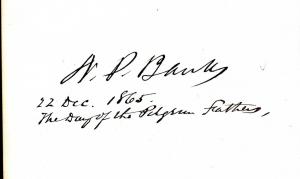 N. P. Banks
22 Dec. 1865.
The Day of the Pilgrim Fathers,